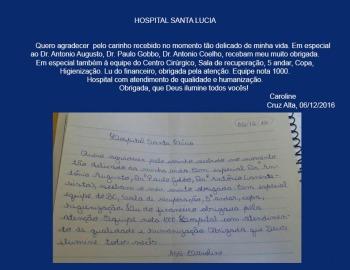 HOSPITAL SANTA LUCIA
Quero agradecer pelo carinho recebido no momento tão delicado de minha vida. Em especial
ao Dr. Antonio Augusto, Dr. Paulo Gobbo, Dr. Antonio Coelho, recebam meu muito obrigada.
Em especial também à equipe do Centro Cirúrgico, Sala de recuperação, 5 andar, Copa,
Higienização. Lu do financeiro, obrigada pela atenção. Equipe nota 1000.
Hospital com atendimento de qualidade e humanização.
Obrigada, que Deus ilumine todos vocês!
Caroline
Cruz Alta, 06/12/2016
Hospital Santa
Quero agradecer pelo carinho recebido no momento
tão delicado da minha vida. Em especial Dr. An-
tônio Augusto, Dr. Paulo Gobbo, Dr. Antônio
recebam o meu muito obrigada. Em especial
equipe do BC, Sala de recuperação, 5º andar, copa,
higienização. Lu do financeiro obrigada pela
atenção. Equipe nota 1000. Hospital com atendimen-
to de qualidade e humanização. Obrigada que Deus
ilumine todos vocês.